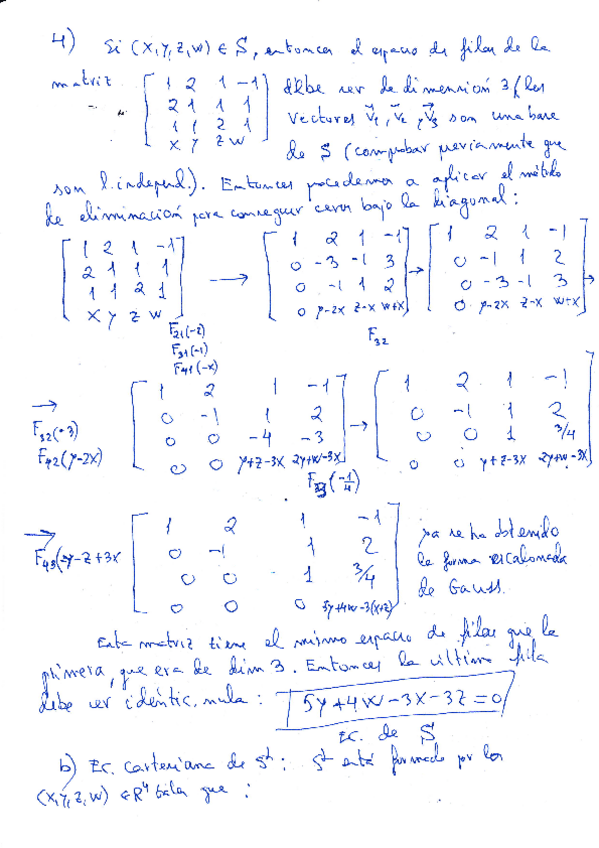 4) Si (x,y,z,w) ∈ S, entonces el espacio de filas de la
matriz [1 2 1 -1; 2 1 1 1; 1 1 2 1; x y z w] debe ser de dimensión 3 (los
vectores v⃗1, v⃗2, y v⃗3 son una base
de S (comprobar previamente que
son l.independ.). Entonces procedemos a aplicar el método
de eliminación para conseguir ceros bajo la diagonal:
[1 2 1 -1; 2 1 1 1; 1 1 2 1; x y z w] → [1 2 1 -1; 0 -3 -1 3; 0 -1 1 2; 0 y-2x z-x w+x] → [1 2 1 -1; 0 -1 1 2; 0 -3 -1 3; 0 y-2x z-x w+x] →
F21(-2)
F31(-1)
F41(-x)
F32
→ F32(-3) F42(y-2x) [1 2 1 -1; 0 -1 1 2; 0 0 -4 -3; 0 0 y+z-3x 2y+w-3x] → [1 2 1 -1; 0 -1 1 2; 0 0 1 3/4; 0 0 y+z-3x 2y+w-3x]
F33(-1/4)
→ F43(-y-z+3x [1 2 1 -1; 0 -1 1 2; 0 0 1 3/4; 0 0 0 5y+4w-3(x+z)] ya se ha obtenido
la forma escalonada
de Gauss.
Esta matriz tiene el mismo espacio de filas que la
primera, que era de dim 3. Entonces la última fila
debe ser idéntic. nula: 5y+4w-3x-3z=0
Ec. de S
b) Ec. cartesiana de S⊥: S⊥ está formado por los
(x,y,z,w) ∈ R⁴ tales que :